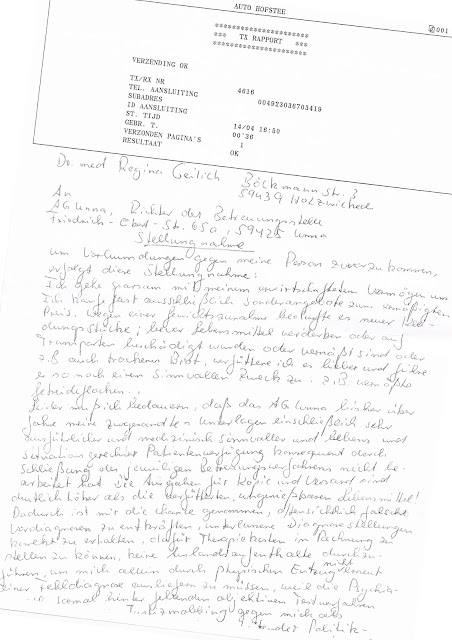 AUTO HOFSTEE
001
***********************
*** TX RAPPORT ***
***********************
VERZENDING OK
TX/RX NR 4616
TEL. AANSLUITING 004923036703419
SUBADRES
ID AANSLUITING
ST. TIJD 14/04 16:50
GEBR. T. 00'36
VERZONDEN PAGINA'S 1
RESULTAAT OK
Dr. med Regina Böckmann Str.
59439 Holzwickede
An
AG Unna, Richter der Betreuungsstelle
Friedrich-Ebert-Str. 65a, 59425 Unna
Stellungnahme
um Verleumdungen gegen meine Person zuvorzukommen,
erfolgt diese Stellungnahme:
Ich gehe sparsam mit meinem Vermögen um
Ich kauf fast ausschließlich Sonderangebote zum ermäßigten
Preis. Wegen einer Gewichtszunahme es neuer Klei
dungsstücke; bevor Lebensmittel verderben oder auf
Transporten beschädigt wurden oder sind oder
z.B auch trockenes Brot, verfüttere ich es lieber und führe
es so noch einem sinnvollen Zweck zu. z.B
Getreideflocken.
Leider muß ich bedauern, daß das AG Unna bisher über
Jahre meine zugesandten Unterlagen einschließlich sehr
ausführlicher und medizinisch sinnvoller und lebens und
situationsgerechter Patientenverfügung konsequent durch
Schließung des jeweiligen Betreuungsverfahrens nicht be-
arbeitet hat. Die Ausgaben für Kopie und Versand sind
deutlich höher als die verfütterten, ungenießbaren Lebensmittel!
Dadurch ist mir die Chance genommen, offensichtlich falsche
Verdiagnosen zu entkräften, unterlassene Diagnosestellungen
korrekt zu erhalten, dafür Therapiekosten in Rechnung zu
stellen zu können, keine Auslandsaufenthalte durchzu-
führen, um mich allein durch physischen nicht
einer Felldiagnose ausliefern zu müssen, weil die Psychia-
hinter fehlenden objektiven Testverfahren
gegen mich als
der Politik-